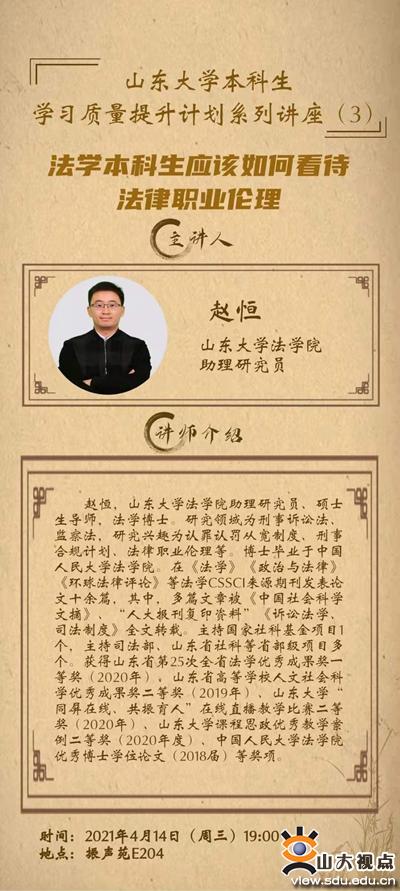 山东大学本科生
学习质量提升计划系列讲座（3）
法学本科生应该如何看待
法律职业伦理
主讲人
赵恒
山东大学法学院
助理研究员
讲师介绍
赵恒，山东大学法学院助理研究员、硕士
生导师，法学博士。研究领域为刑事诉讼法、
监察法，研究兴趣为认罪认罚从宽制度、刑事
合规计划、法律职业伦理等。博士毕业于中国
人民大学法学院。在《法学》《政治与法律》
《环球法律评论》等法学CSSCI来源期刊发表论
文十余篇，其中，多篇文章被《中国社会科学
文摘》、“人大报刊复印资料”《诉讼法学、
司法制度》全文转载。主持国家社科基金项目1
个，主持司法部、山东省社科等省部级项目多
个。获得山东省第25次全省法学优秀成果奖一
等奖（2020年）、山东省高等学校人文社会科
学优秀成果奖二等奖（2019年）、山东大学“
同屏在线、共振育人”在线直播教学比赛二等
奖（2020年）、山东大学课程思政优秀教学案
例二等奖（2020年度）、中国人民大学法学院
优秀博士学位论文（2018届）等奖项。
时间：2021年4月14日（周三）19:00
地点：振声苑E204
山大视点
view.sdu.edu.cn